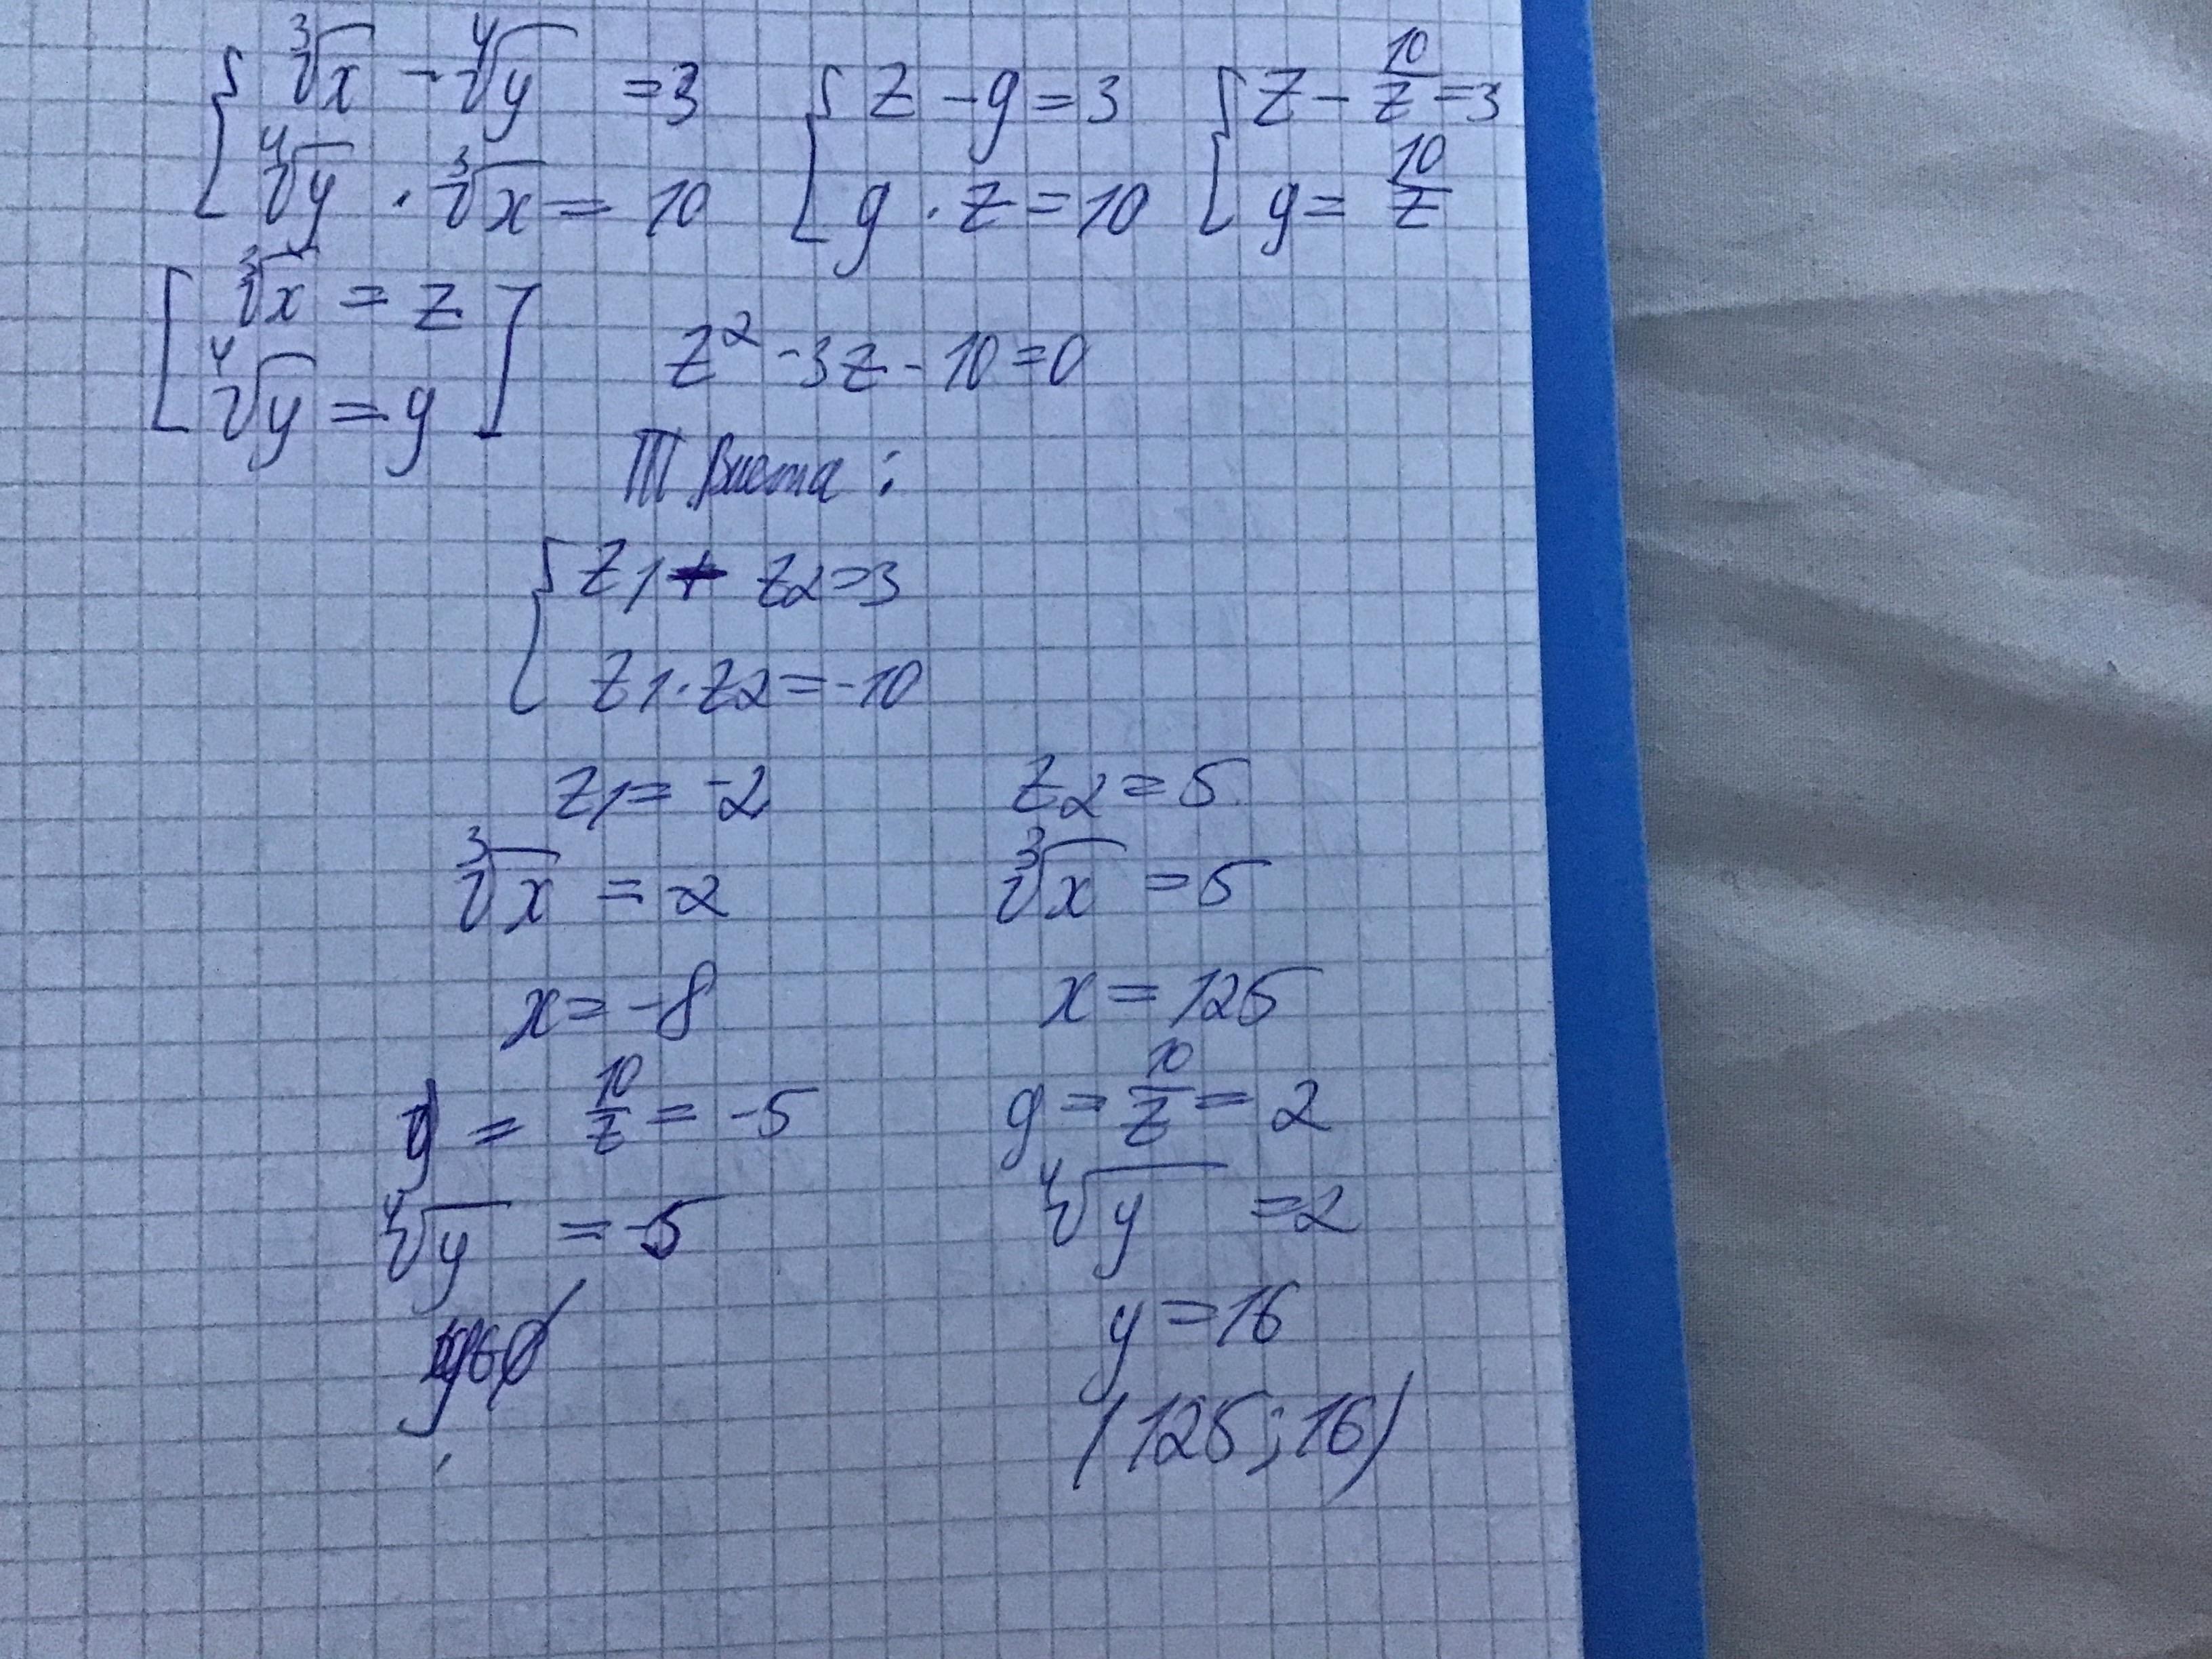 { ∛x − ∜y = 3 { z − g = 3 { z − 10/z = 3
∜y · ∛x = 10 g · z = 10 g = 10/z
[ ∛x = z ]
∜y = g z² − 3z − 10 = 0
Т. Виета :
{ z1 + z2 = 3
z1 · z2 = −10
z1 = −2 z2 = 5
∛x = −2 ∛x = 5
x = −8 x = 125
g = 10/z = −5 g = 10/z = 2
∜y = −5 ∜y = 2
y ∈ ∅ y = 16
(125; 16)